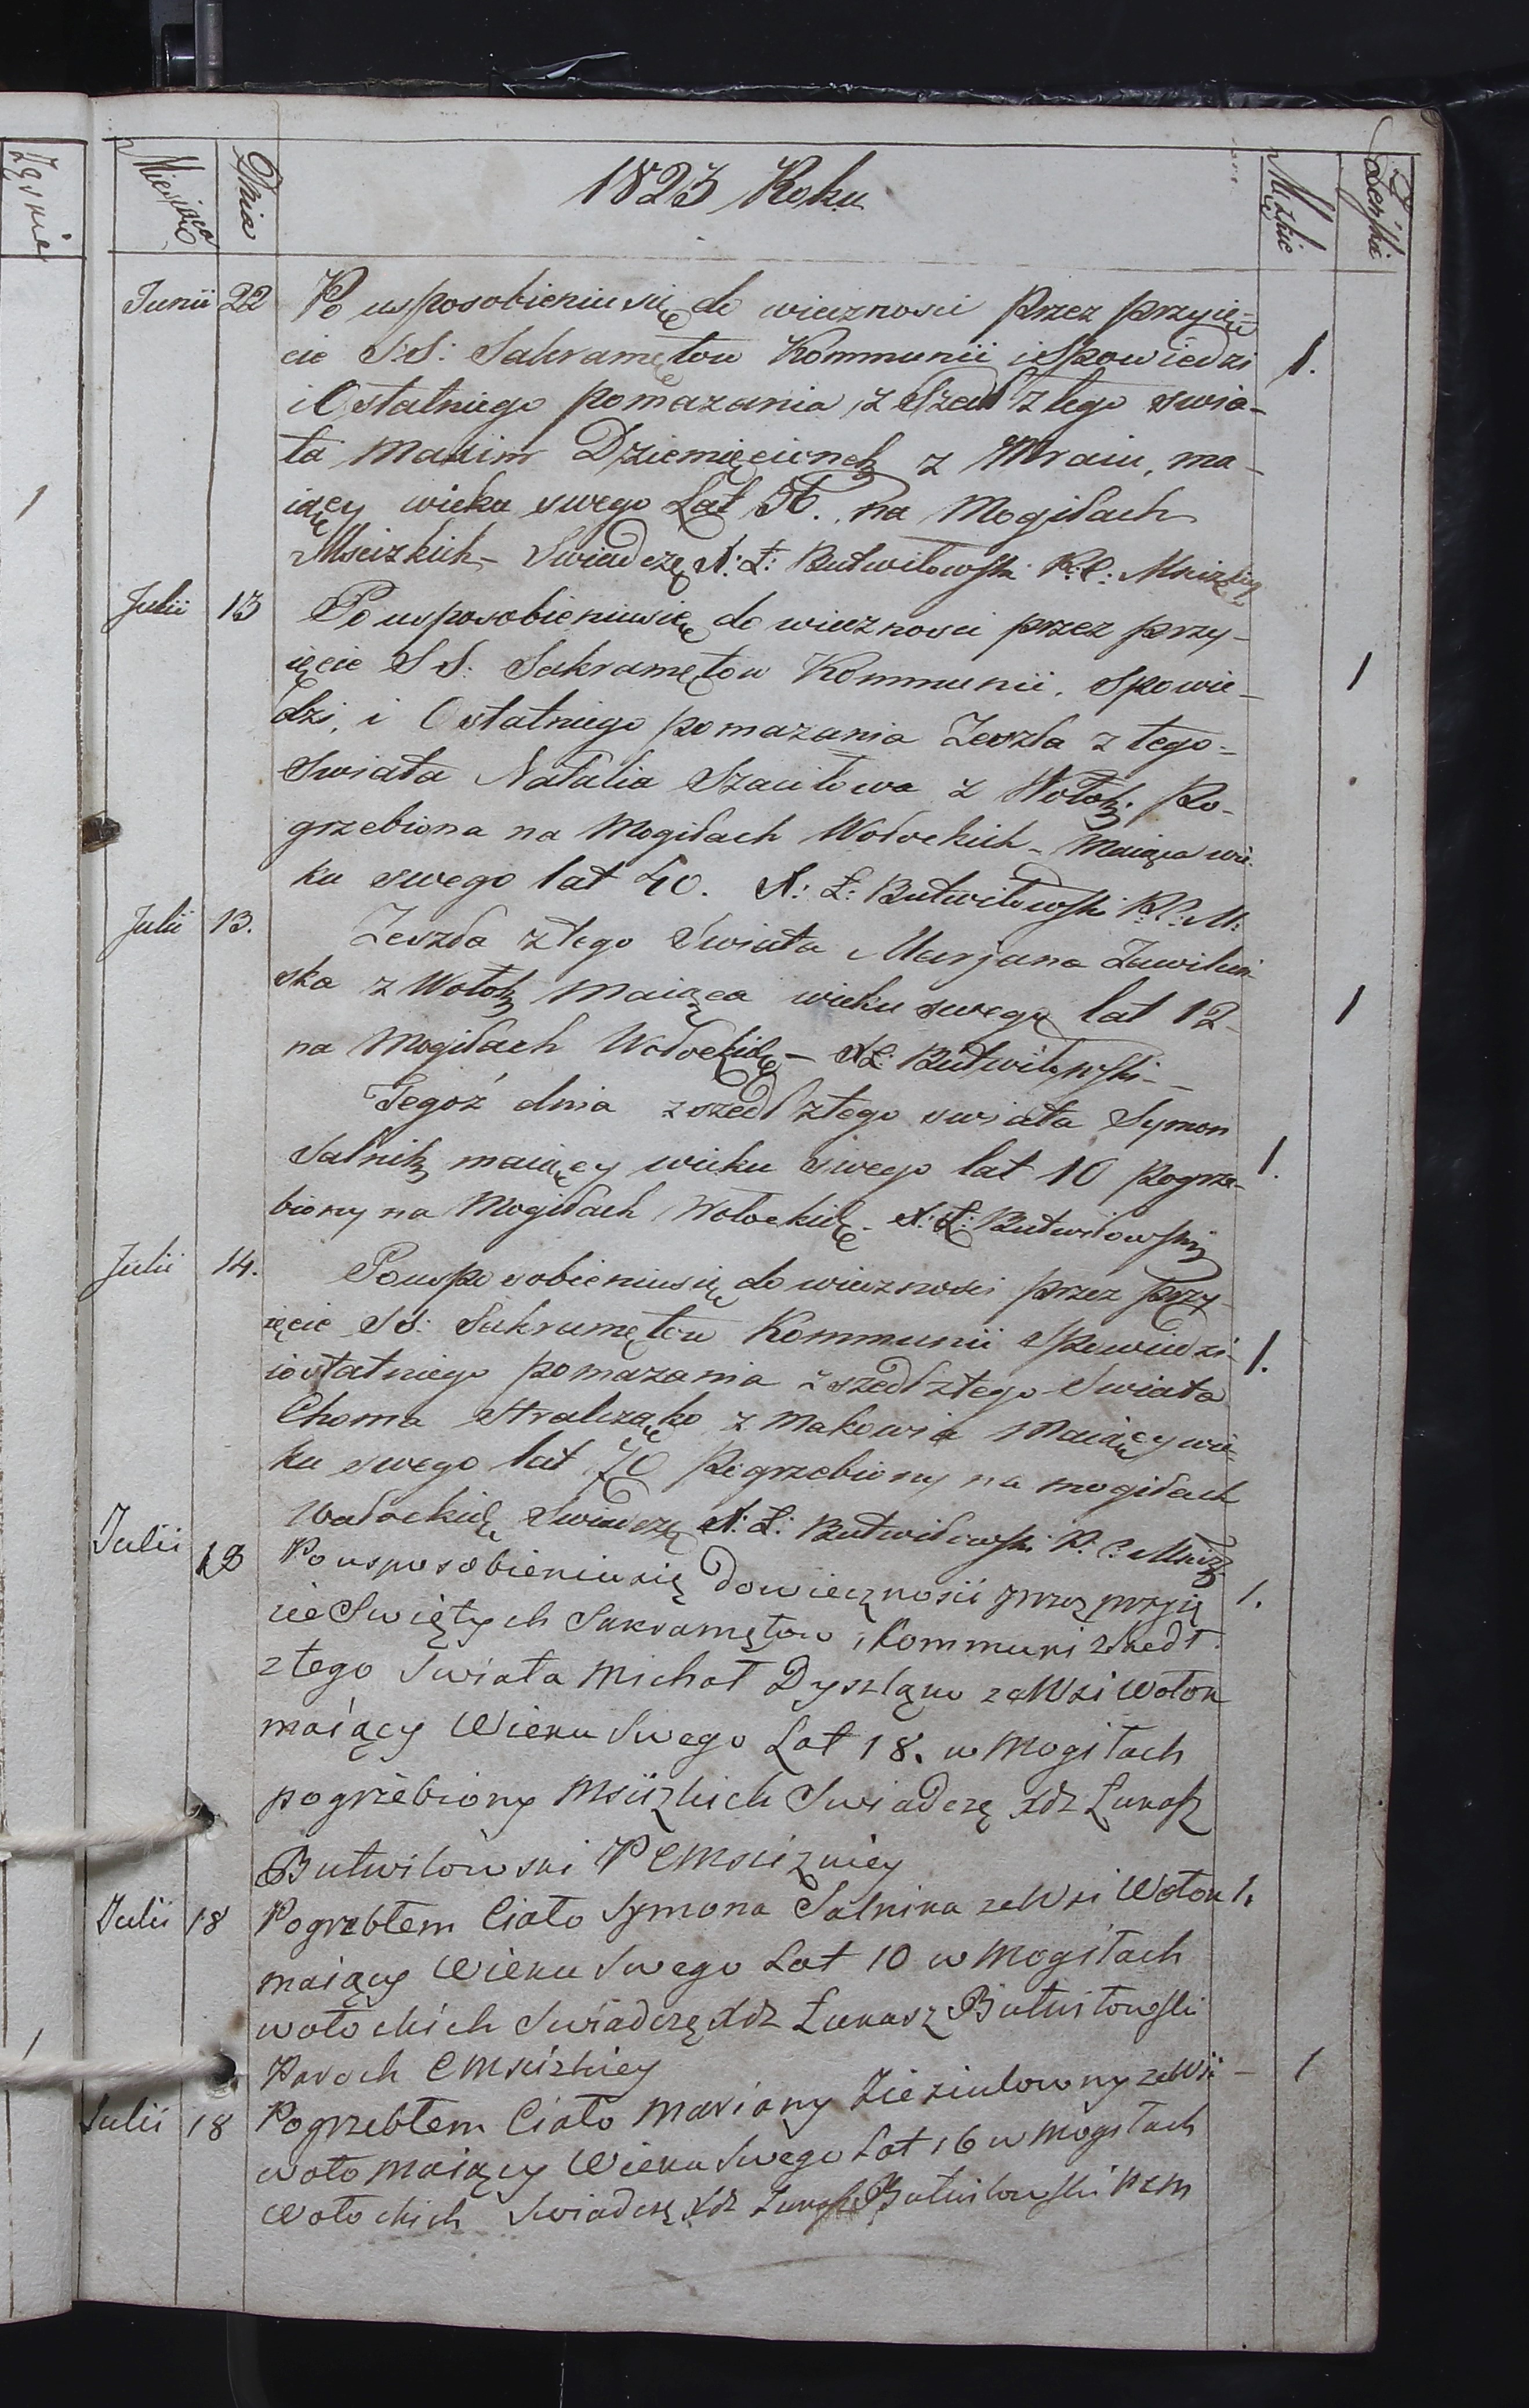 Miesiąca Dnia 1823 Roku Męzkie Żeńskie
Zęskie
Junii 22 Po usposobieniu się do wiecznosci Przez przyię=
cie S.S: Sakramętow Kommunii i Spowiedzi 1.
i Ostatniego pomazania, z Szedł z tego swia-
ta Maxim z ma-
iący wieku swego Lat na Mogiłach
Mscizkich – Swiadczę X: Ł: Butwiłowski P: C:
Julii 13 Po usposobieniusię do wiecznosci przez przy-
ięcie S S: Sakramętow Kommunii, Spowie- 1
dzi, i Ostatniego pomazania Zeszła z tego=
Swiata Natalia Szaciłowa z Wołok. Po-
grzebiona na Mogiłach Wołockich – Maiąca wie-
ku swego lat 40. X: Ł: Butwiłowski P.C: M:
Julii 13. Zeszła ztego Swiata Marjana
ska z Wołok Maiąca wieku swego lat 12 1
na Mogiłach Wołockich – XŁ: Butwiłowski –
Tegoż dnia zszedł ztego swiata Symon
Salnik maiący wieku swego lat 10 Pogrze- 1.
biony na Mogiłach Wołockich – X: Ł: Butwiłowski
Julii 14. Pousposobieniusię do wiecznosci przez Przy-
ięcie SS: Sakramętow Kommunii Spowiedzi 1.
iostatniego pomazania zszedł ztego Swiata
Choma z Makowia Maiący wie
ku swego lat 70 Pogrzebiony na mogiłach
Wołockich Swiadczę X: Ł: Butwiłowski P. C.
Julii 18 Pousposobieniusię dowiecznosii przez przyię 1.
cie Swiętych Sakramętow i Kommuni zszedł
ztego Swiata Michał zeWsi Wołok
maiący Wieku Swego Lat 18. w Mogiłach
pogrzebiony Mscizkich Swiadczę xdz Łukasz
Butwiłowski P C Mscizkiey
Julii 18 Pogrzebłem Ciało Symona Salnika zeWsi Wołok 1.
maiący Wieku Swego Lat 10 w Mogiłach
wołockich Swiadczę xdz Łukasz Butwiłowski
Paroch C Mscizkiey
Julii 18 Pogrzebłem Ciało Mariany zeWsi – 1
woło Maiący Wieku Swego Lat 16 w Mogiłach
Wołockich Swiadczę xdz Łukasz Butwiłowski PCM